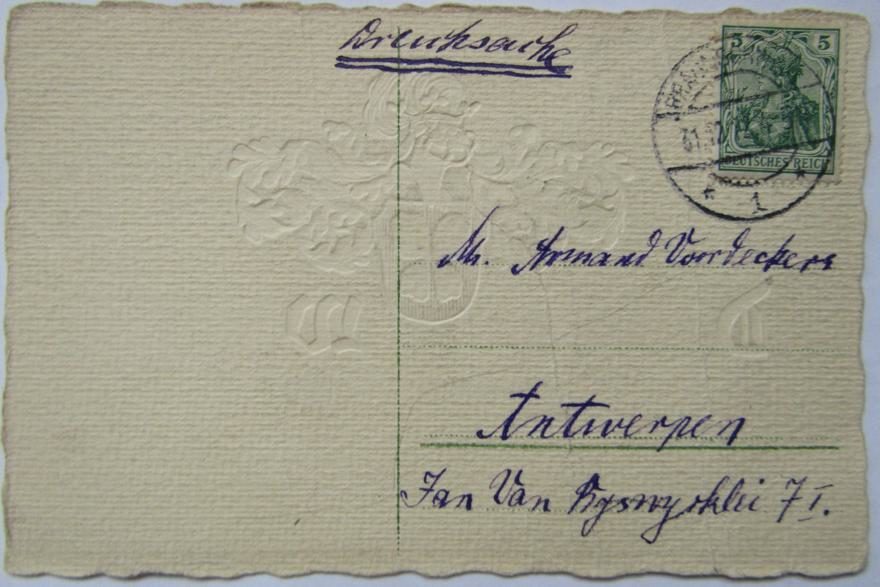 Drucksache
5 5
DEUTSCHES REICH
31.12.
* 1 *
M. Armand Voordeckers
Antwerpen
Jan Van Ryswycklei 7 I.